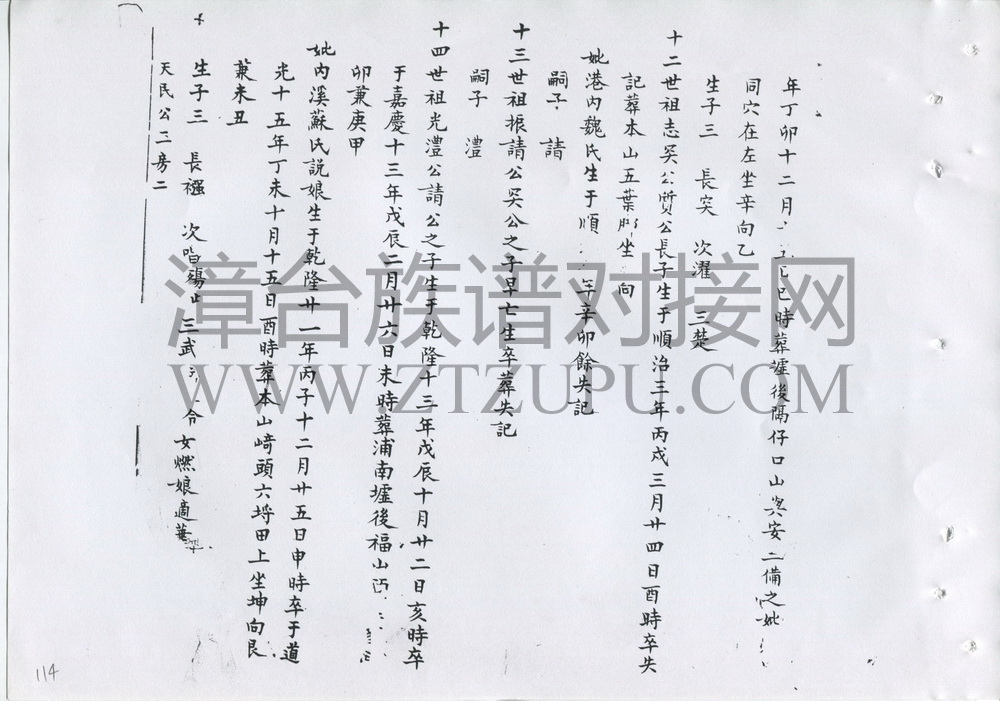 年丁卯十二月 巳時葬墟後隔仔口山 安二備之妣
同穴在左坐辛向乙
生子三 長突 次濯 三楚
十二世祖志吴公質公長子生于順治三年丙戍三月廿四日酉時卒失
記葬本山五葉 坐 向
妣港内魏氏生于順 年辛卯餘失記
嗣子 請
十三世祖振請公吴公之子早亡生卒葬失記
嗣子 澧
十四世祖光澧公請公之子生于乾隆十三年戊辰十月廿二日亥時卒
于嘉慶十三年戊辰二月廿六日未時葬浦南墟後福山
卯兼庚甲
妣内溪蘇氏説娘生于乾隆廿一年丙子十二月廿五日申時卒于道
光十五年丁未十月十五日酉時葬本山﨑頭六埓田上坐坤向艮
兼未丑
生子三 長襁 次 殤止 三武 令 女燃娘適
天民公三房二
114
漳台族谱对接网
WWW.ZTZUPU.COM